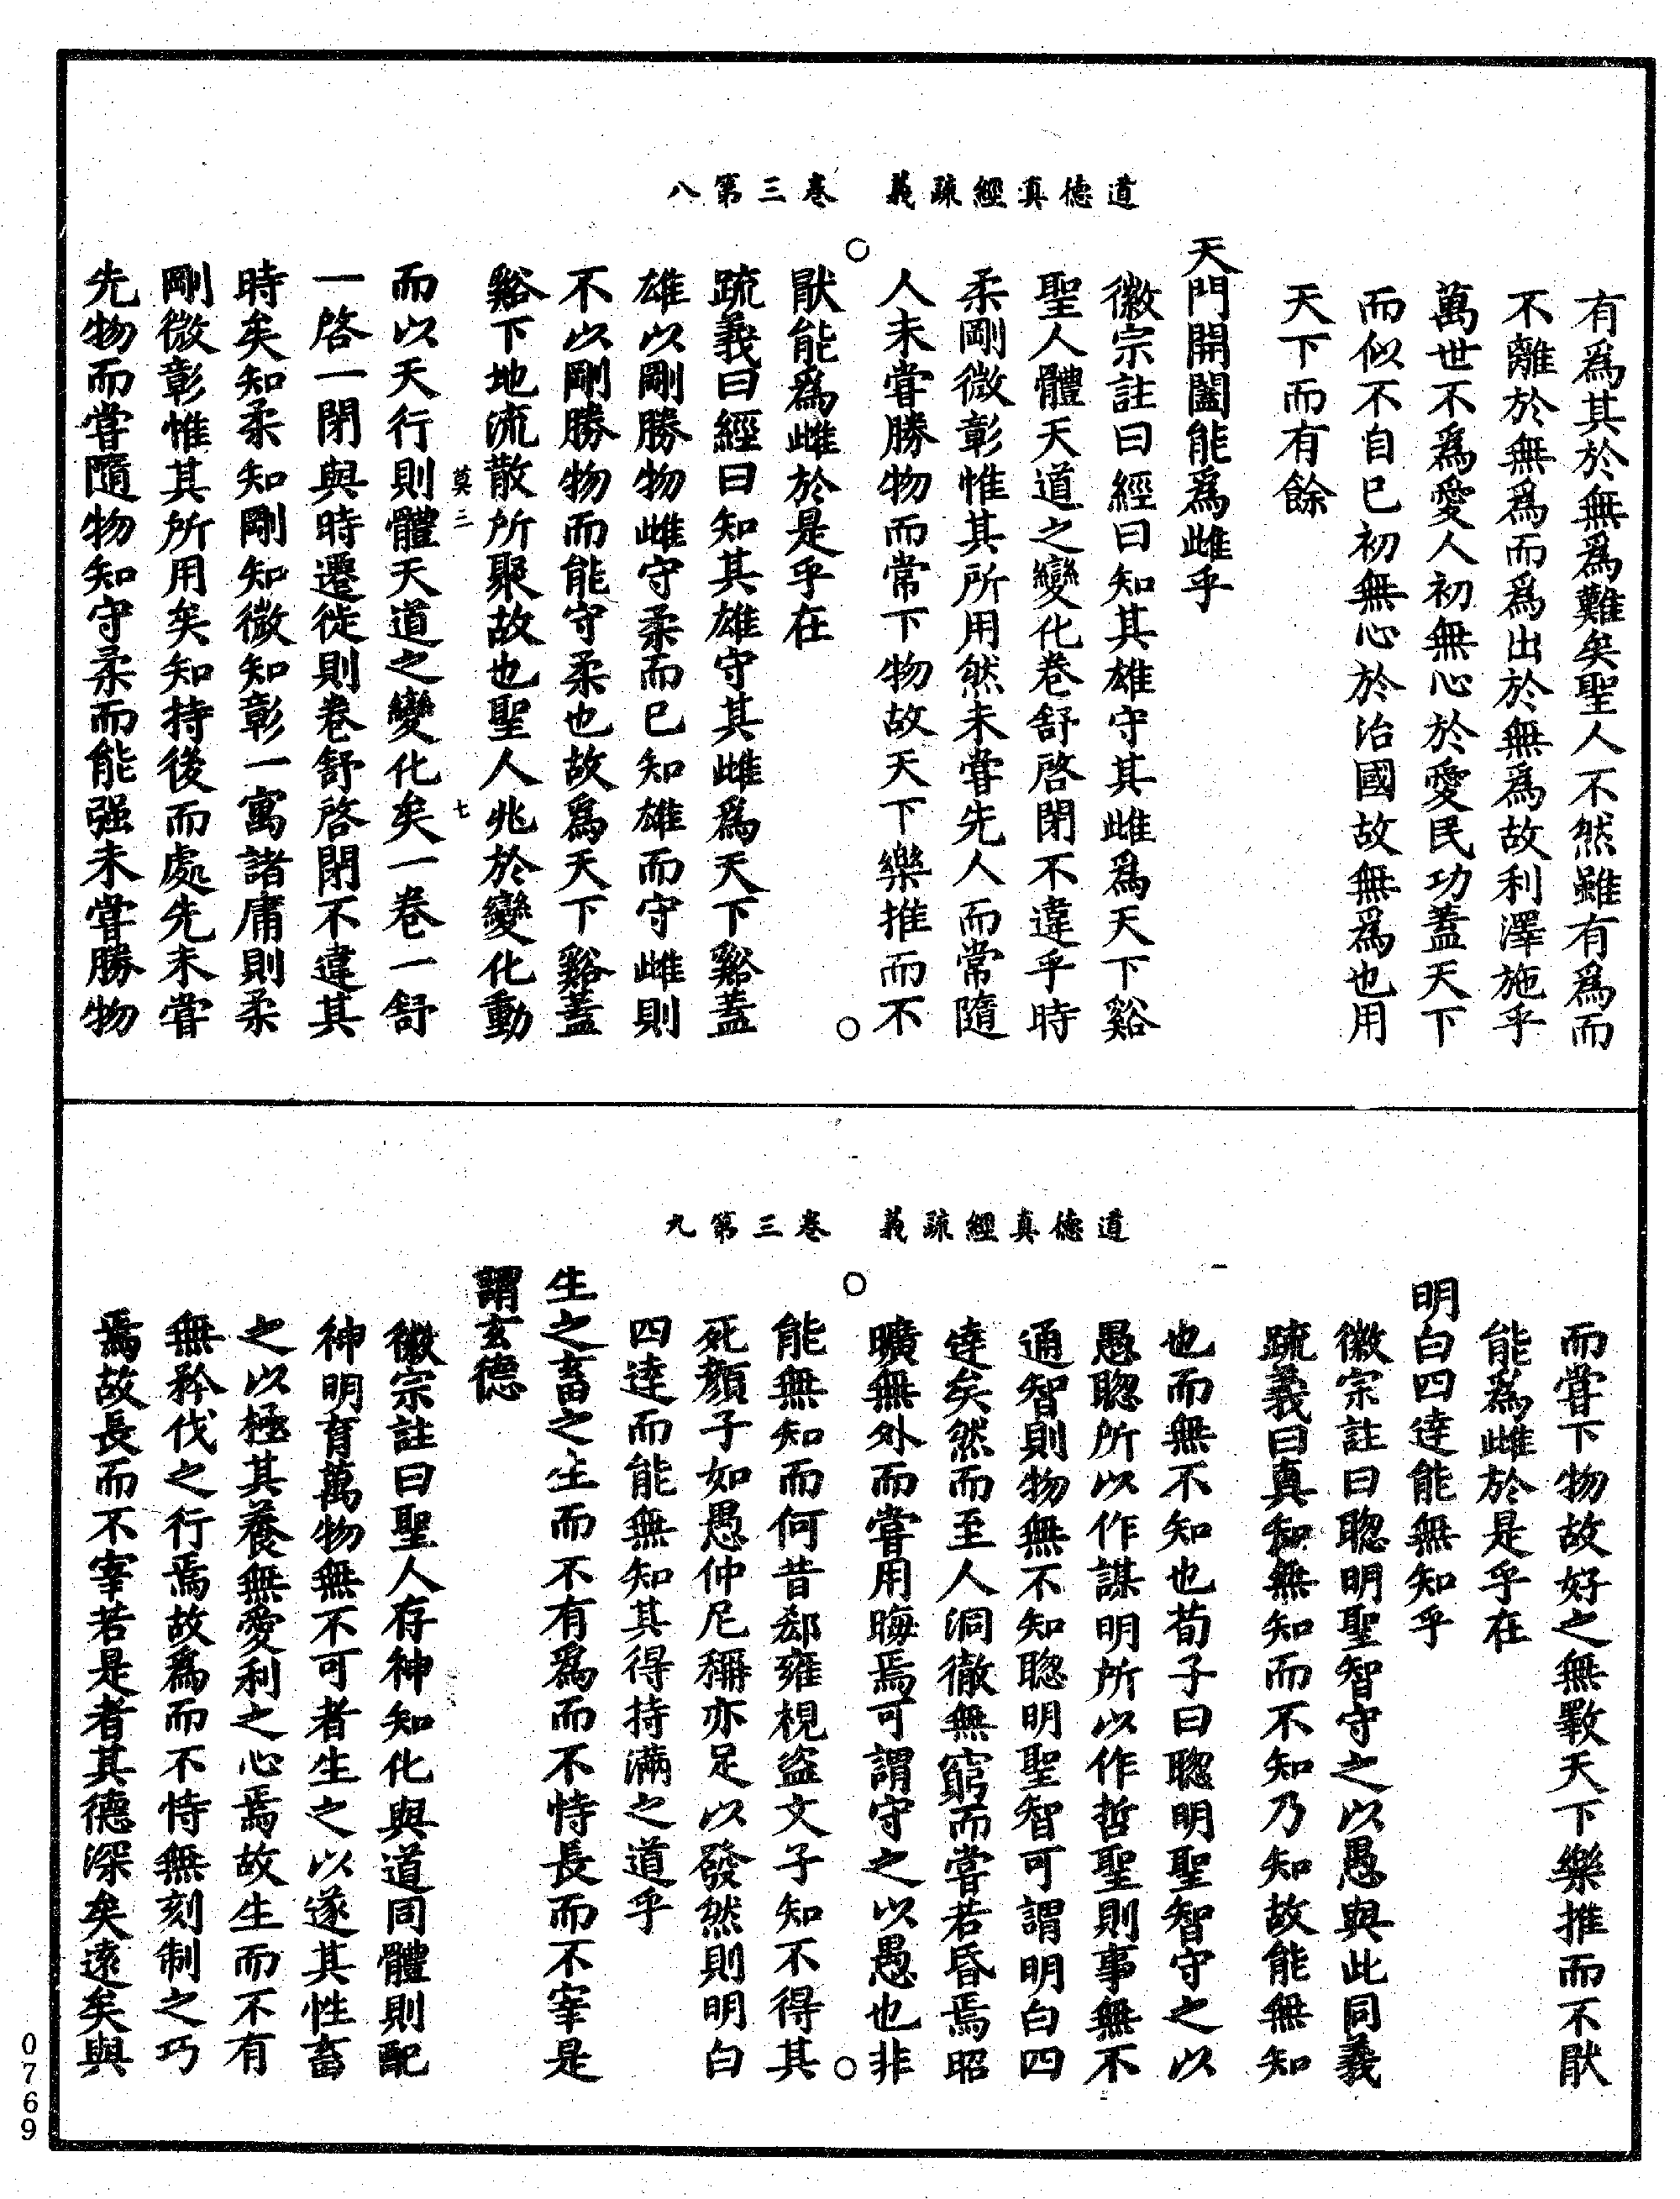 道德真經疏義　卷三第八
有爲其於無爲難矣聖人不然雖有爲而
不離於無爲而爲出於無爲故利澤施乎
萬世不爲愛人初無心於愛民功蓋天下
而似不自已初無心於治國故無爲也用
天下而有餘
天門開闔能爲雌乎
徽宗註曰經曰知其雄守其雌爲天下谿
聖人體天道之變化卷舒啓閉不違乎時
柔剛微彰惟其所用然未嘗先人而常隨
人未嘗勝物而常下物故天下樂推而不
猒能爲雌於是乎在
疏義曰經曰知其雄守其雌爲天下谿蓋
雄以剛勝物雌守柔而已知雄而守雌則
不以剛勝物而能守柔也故爲天下谿蓋
谿下地流散所聚故也聖人兆於變化動
莫三　七
而以天行則體天道之變化矣一卷一舒
一啓一閉與時遷徙則卷舒啓閉不違其
時矣知柔知剛知微知彰一寓諸庸則柔
剛微彰惟其所用矣知持後而處先未嘗
先物而嘗隨物知守柔而能强未嘗勝物
道德真經疏義　卷三第九
而嘗下物故好之無斁天下樂推而不猒
能爲雌於是乎在
明白四達能無知乎
徽宗註曰聰明聖智守之以愚與此同義
疏義曰真知無知而不知乃知故能無知
也而無不知也荀子曰聰明聖智守之以
愚聰所以作謀明所以作哲聖則事無不
通智則物無不知聰明聖智可謂明白四
達矣然而至人洞徹無窮而嘗若昏焉昭
曠無外而嘗用晦焉可謂守之以愚也非
能無知而何昔郄雍視盜文子知不得其
死顏子如愚仲尼稱亦足以發然則明白
四達而能無知其得持滿之道乎
生之畜之生而不有爲而不恃長而不宰是
謂玄德
徽宗註曰聖人存神知化與道同體則配
神明育萬物無不可者生之以遂其性畜
之以極其養無愛利之心焉故生而不有
無矜伐之行焉故爲而不恃無刻制之巧
焉故長而不宰若是者其德深矣遠矣與
0769